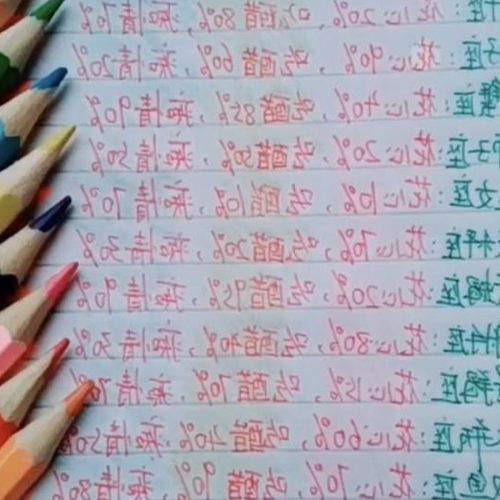 座：花心20%，吃醋80%，痴情70%
子座：花心90%，吃醋60%，痴情20%
蟹座：花心40%，吃醋85%，痴情90%
子座：花心20%，吃醋50%，痴情50%
女座：花心10%，吃醋10%，痴情70%
秤座：花心70%，吃醋20%，痴情30%
蝎座：花心20%，吃醋95%，痴情90%
座：花心80%，吃醋40%，痴情30%
座：花心15%，吃醋70%，痴情
瓶座：花心60%，吃醋40%，痴情50%
鱼座：花心70%，吃醋90%，痴情80%